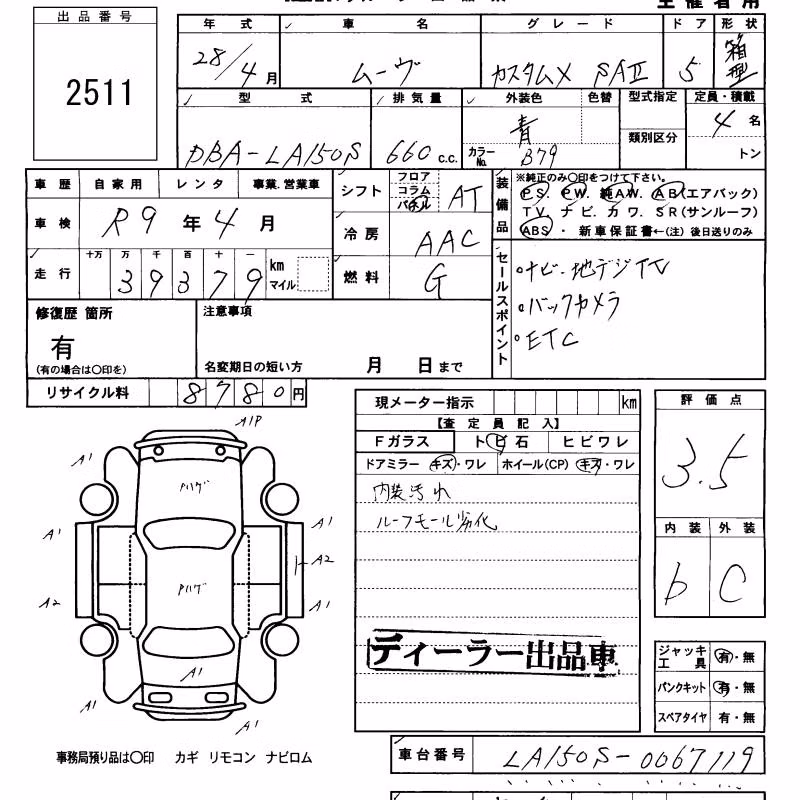 出品番号
2511
年式 車名 グレード ドア 形状
28/4月 ムーヴ カスタムX SAⅡ 5 箱型
型式 排気量 外装色 色替 型式指定 定員・積載
DBA-LA150S 660 c.c. 青 カラーNo. B79 類別区分 4名
トン
車歴 自家用 レンタ 事業.営業車
車検 R9年4月
走行 十万 万 千 百 十 一
39379 km マイル
シフト フロア コラム パネル AT
冷房 AAC
燃料 G
装備品 ※純正のみ〇印をつけて下さい。
PS. PW. 純AW. AB(エアバック)
TV. ナビ. カワ. SR(サンルーフ)
ABS ・ 新車保証書←(注) 後日送りのみ
セールスポイント
・ナビ・地デジTV
・バックカメラ
・ETC
修復歴 箇所
有
(有の場合は〇印を)
注意事項
名変期日の短い方 月 日まで
リサイクル料 8780円
現メーター指示 km
【査定員記入】
Fガラス トビ石 ヒビワレ
ドアミラー キズ・ワレ ホイール(CP) キズ・ワレ
内装汚れ
ルーフモール劣化
ディーラー出品車
評価点
3.5
内装 外装
b C
ジャッキ工具 有・無
パンクキット 有・無
スペアタイヤ 有・無
A1P
A1
Pハゲ
A1 A1
A2
Pハゲ
A2 A1
A1
A1 A1
事務局預り品は〇印 カギ リモコン ナビロム
車台番号 LA150S-0067119